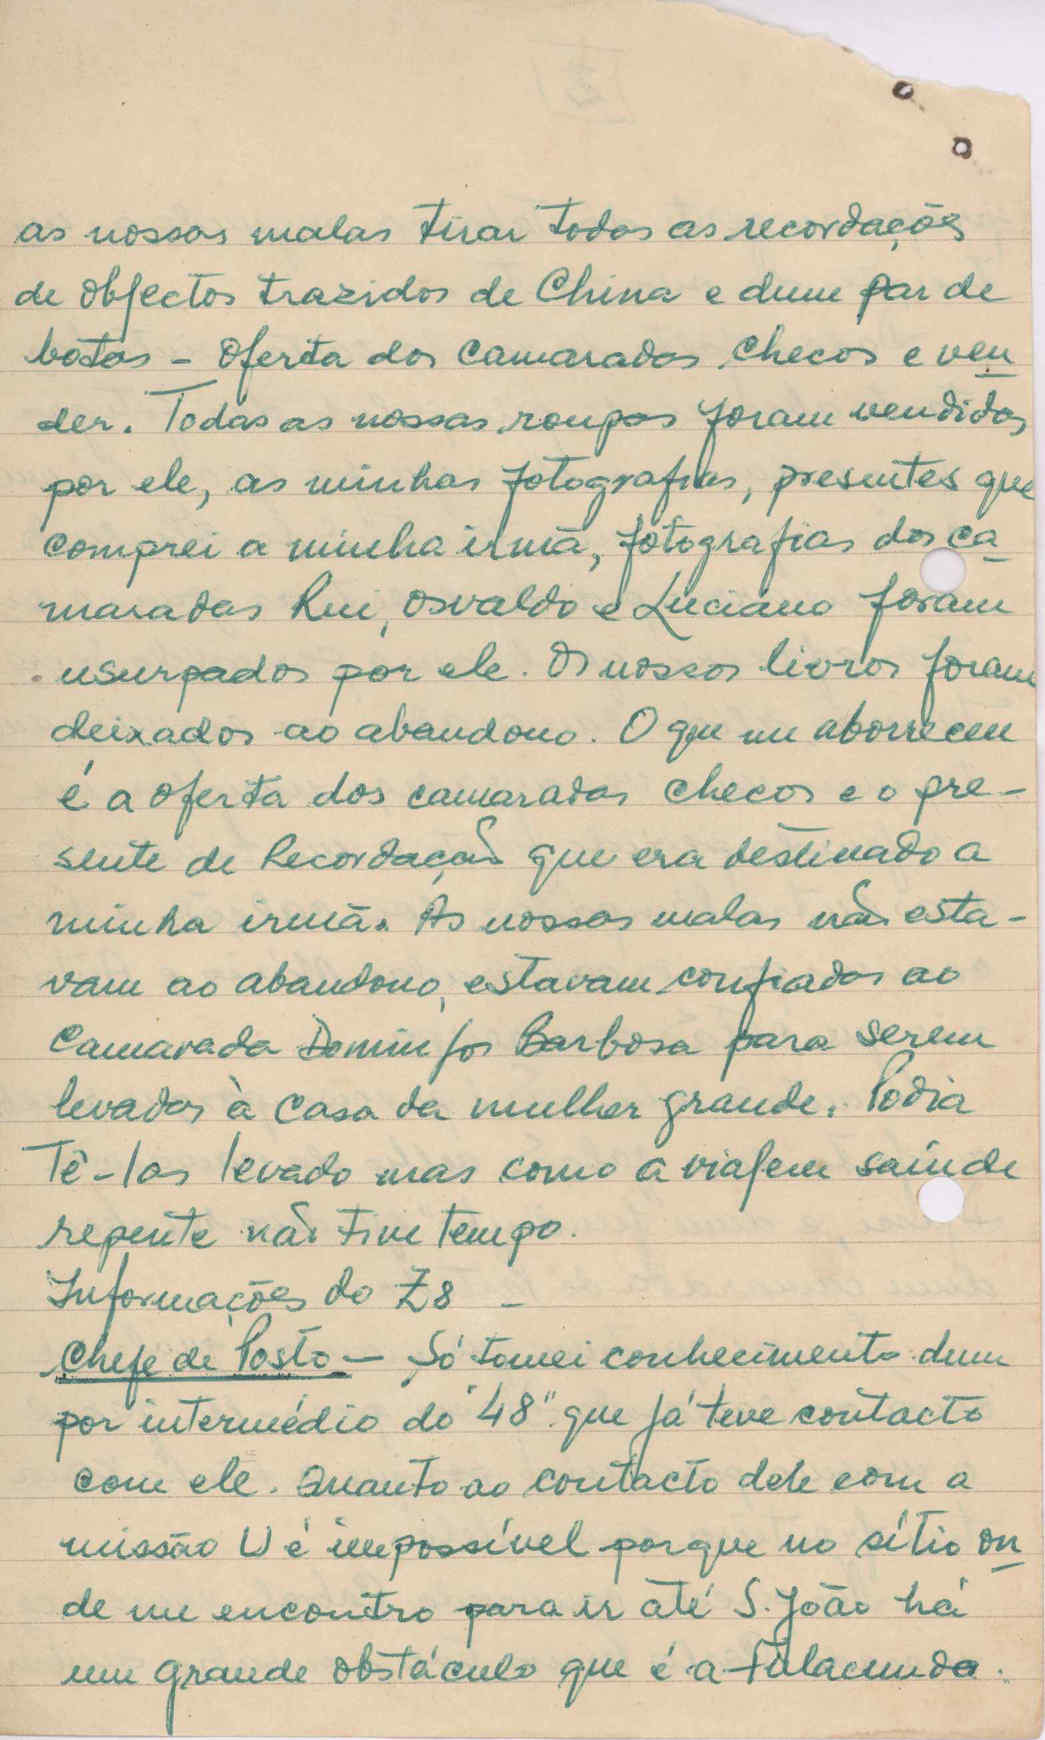 as nossas malas tirar todas as recordações
de objectos trazidos de China e dum par de
botas - oferta dos camaradas checos e ven
der. Todas as nossas roupas foram vendidas
por ele, as minhas fotografias, presentes que
comprei a minha irmã, fotografias dos ca
maradas Rui, Osvaldo e Luciano foram
usurpados por ele. Os nossos livros foram
deixados ao abandono. O que me aborreceu
é a oferta dos camaradas checos e o pre-
sente de Recordação que era destinado a
minha irmã. As nossas malas não esta-
vam ao abandono, estavam confiadas ao
Camarada Domingos Barbosa para serem
levadas à casa da mulher grande. Podia
Tê-las levado mas como a viagem saíu de
repente não tive tempo.
Informações do Z8 -
Chefe de Posto - Só tomei conhecimento dum
por intermédio do "48" que já teve contacto
com ele. Quanto ao contacto dele com a
missão U é impossível porque no sítio on
de me encontro para ir até S. João há
um grande obstáculo que é a Fulacunda.